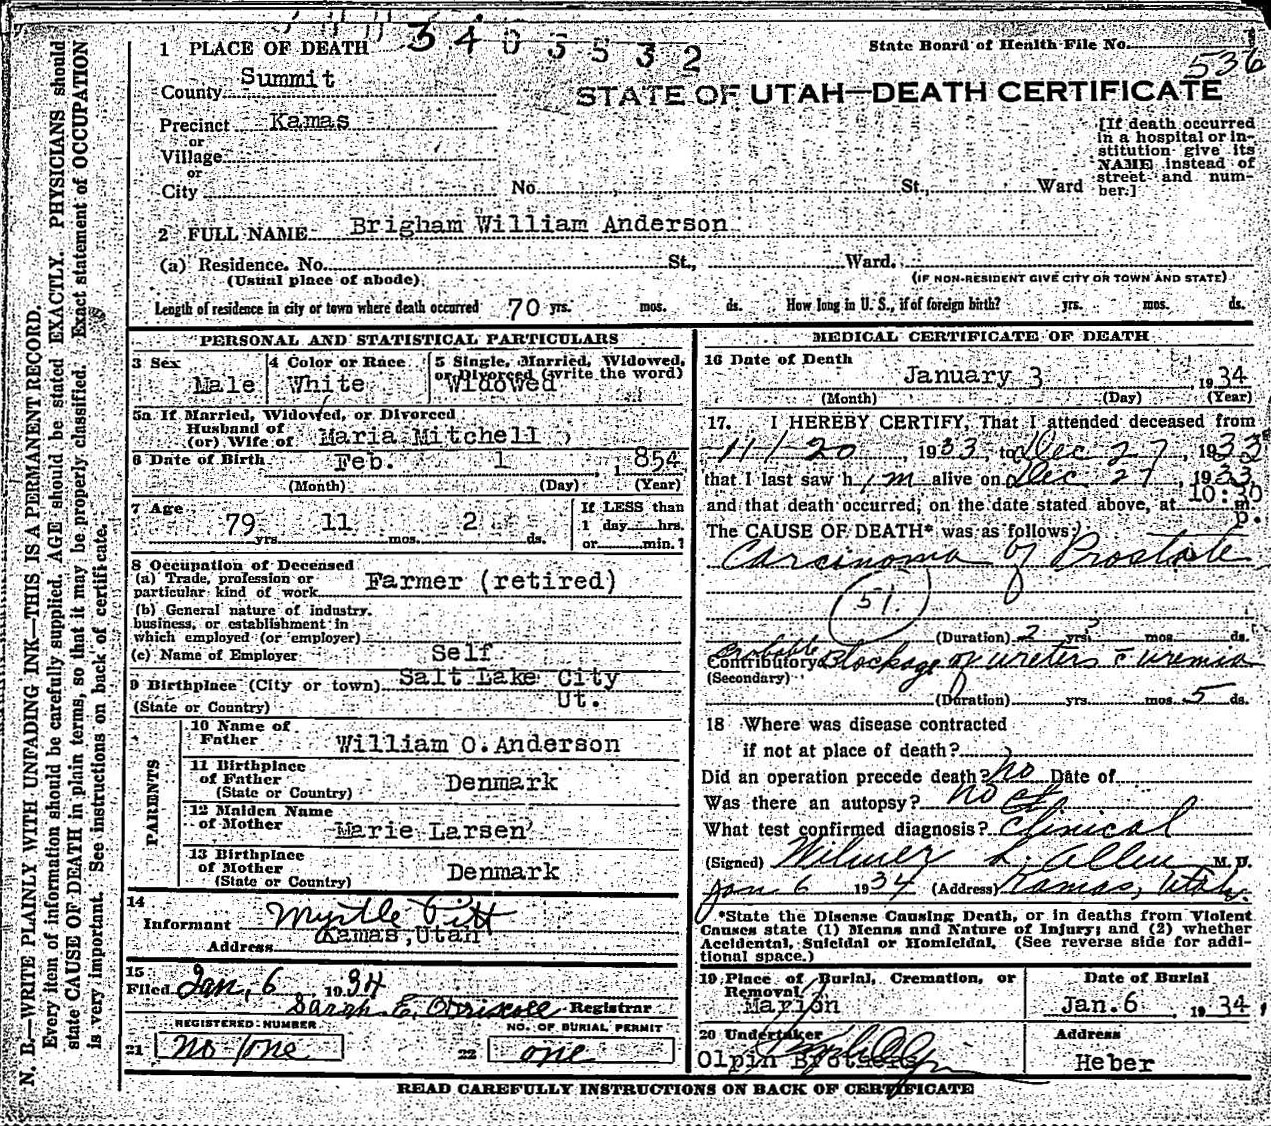 3405532
1 PLACE OF DEATH
State Board of Health File No. 536
County Summit
STATE OF UTAH—DEATH CERTIFICATE
Precinct Kamas
or
Village
or
City No. St., Ward
[If death occurred
in a hospital or in-
stitution give its
NAME instead of
street and num-
ber.]
2 FULL NAME Brigham William Anderson
(a) Residence. No. St., Ward.
(Usual place of abode) (IF NON-RESIDENT GIVE CITY OR TOWN AND STATE)
Length of residence in city or town where death occurred 70 yrs. mos. ds. How long in U. S., if of foreign birth? yrs. mos. ds.
PERSONAL AND STATISTICAL PARTICULARS
3 Sex Male
4 Color or Race White
5 Single, Married, Widowed,
or Divorced (write the word)
Widowed
5a If Married, Widowed, or Divorced
Husband of
(or) Wife of Maria Mitchell
6 Date of Birth Feb. 1, 1854
(Month) (Day) (Year)
7 Age 79 yrs. 11 mos. 2 ds.
If LESS than
1 day hrs.
or min.?
8 Occupation of Deceased
(a) Trade, profession or
particular kind of work Farmer (retired)
(b) General nature of industry,
business, or establishment in
which employed (or employer)
(c) Name of Employer Self
9 Birthplace (City or town) Salt Lake City
(State or Country) Ut.
PARENTS
10 Name of
Father William O. Anderson
11 Birthplace
of Father Denmark
(State or Country)
12 Maiden Name
of Mother Marie Larsen
13 Birthplace
of Mother Denmark
(State or Country)
14
Informant Myrtle Pitt
Address Kamas, Utah
15
Filed Jan, 6 1934
Sarah E. O'Driscoll Registrar
REGISTERED NUMBER
21 no-1one
NO. OF BURIAL PERMIT
22 one
MEDICAL CERTIFICATE OF DEATH
16 Date of Death
January 3, 1934
(Month) (Day) (Year)
17. I HEREBY CERTIFY, That I attended deceased from
11/-20, 1933, to Dec 27, 1933
that I last saw him alive on Dec 27, 1933
and that death occurred, on the date stated above, at 10:30 p. m.
The CAUSE OF DEATH* was as follows:
Carcinoma of Prostate
51.
(Duration) 2 yrs. 3 mos. ds.
probable
Contributory Blockage of ureters c uremia
(Secondary)
(Duration) yrs. mos. 5 ds.
18 Where was disease contracted
if not at place of death?
Did an operation precede death? no Date of
Was there an autopsy? no
What test confirmed diagnosis? Clinical
(Signed) Milner L. Allen M. D.
Jan 6 1934 (Address) Kamas, Utah.
*State the Disease Causing Death, or in deaths from Violent
Causes state (1) Means and Nature of Injury; and (2) whether
Accidental, Suicidal or Homicidal. (See reverse side for addi-
tional space.)
19 Place of Burial, Cremation, or
Removal
Marion
Date of Burial
Jan. 6, 1934,
20 Undertaker
Olpin Brothers
Address
Heber
READ CAREFULLY INSTRUCTIONS ON BACK OF CERTIFICATE
N. B.—WRITE PLAINLY WITH UNFADING INK—THIS IS A PERMANENT RECORD.
Every item of information should be carefully supplied. AGE should be stated EXACTLY. PHYSICIANS should
state CAUSE OF DEATH in plain terms, so that it may be properly classified. Exact statement of OCCUPATION
is very important. See instructions on back of certificate.